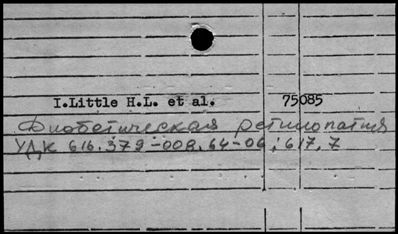 I.Little H.L. et al. 75085
Диабетическая ретинопатия
УДК 616.379-008.64-06; 617.7